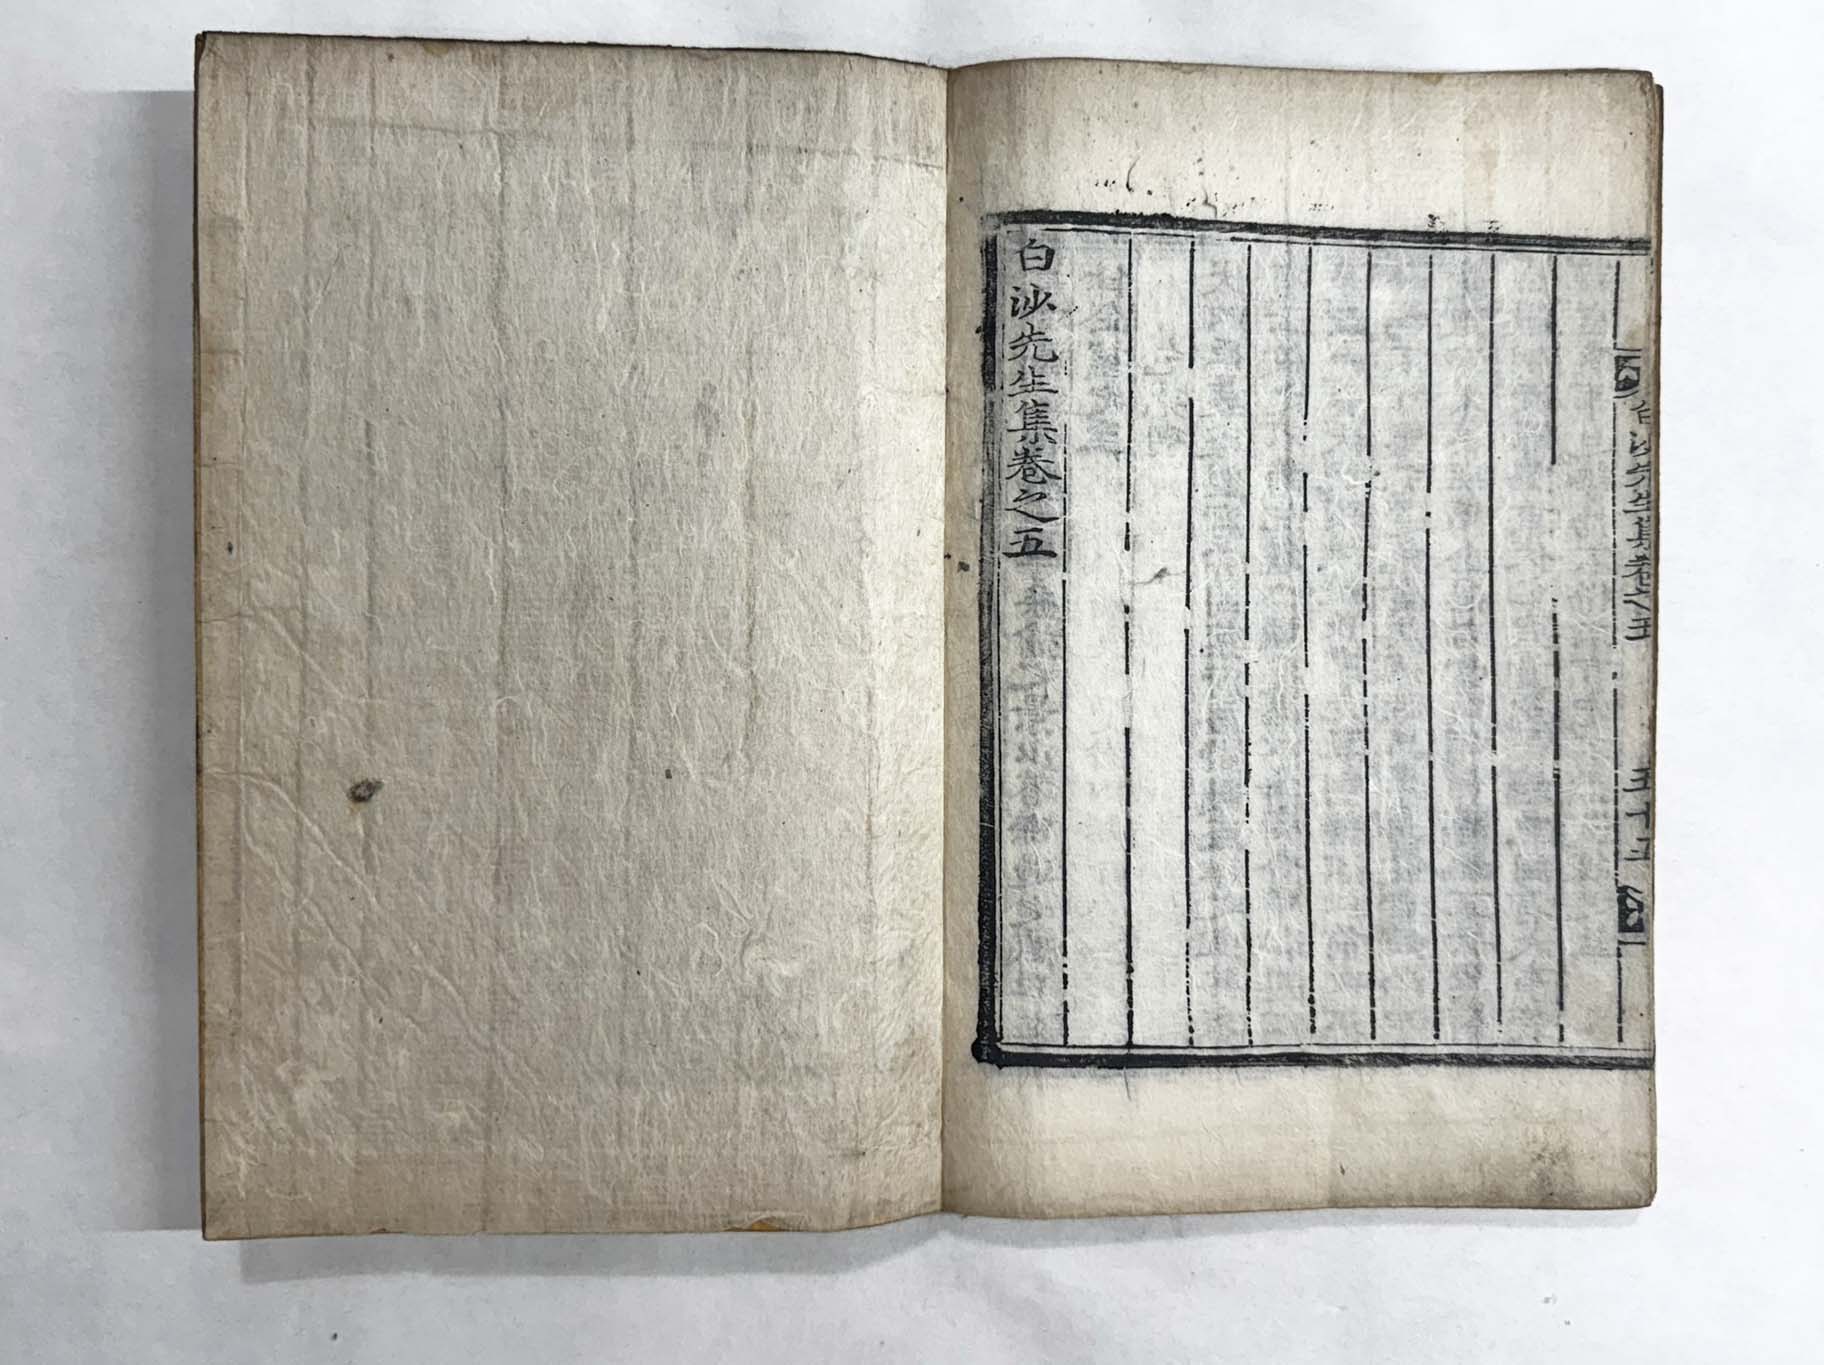 白沙先生集卷之五
白沙先生集卷之五